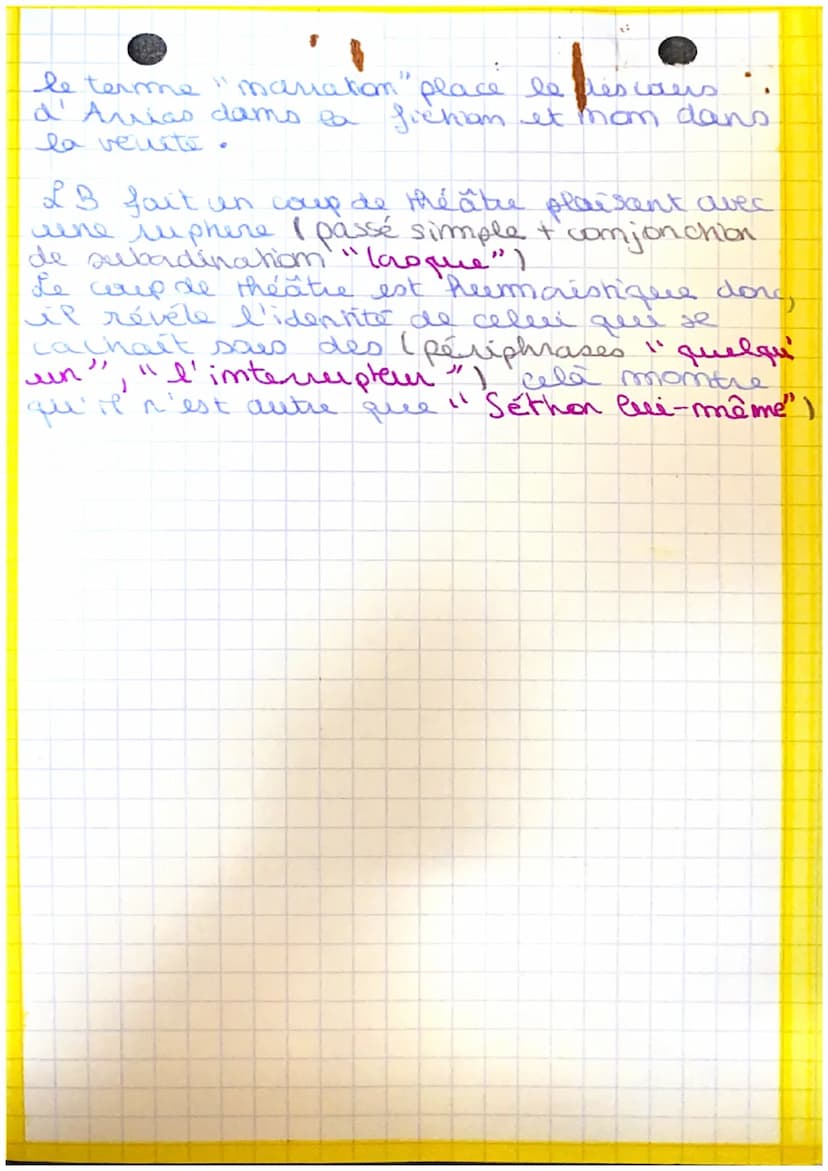 le terme "narration" place le discours
d'Arrias dans la fiction et non dans
la vérité.
LB fait un coup de théâtre plaisant avec
une rupture (passé simple + conjonction
de subordination "lorsque")
Le coup de théâtre est humoristique donc,
il révèle l'identité de celui qui se
cachait sous des (périphrases "quelqu'
un", "l'interrupteur") celà montre
qu'il n'est autre que "Séthon lui-même")